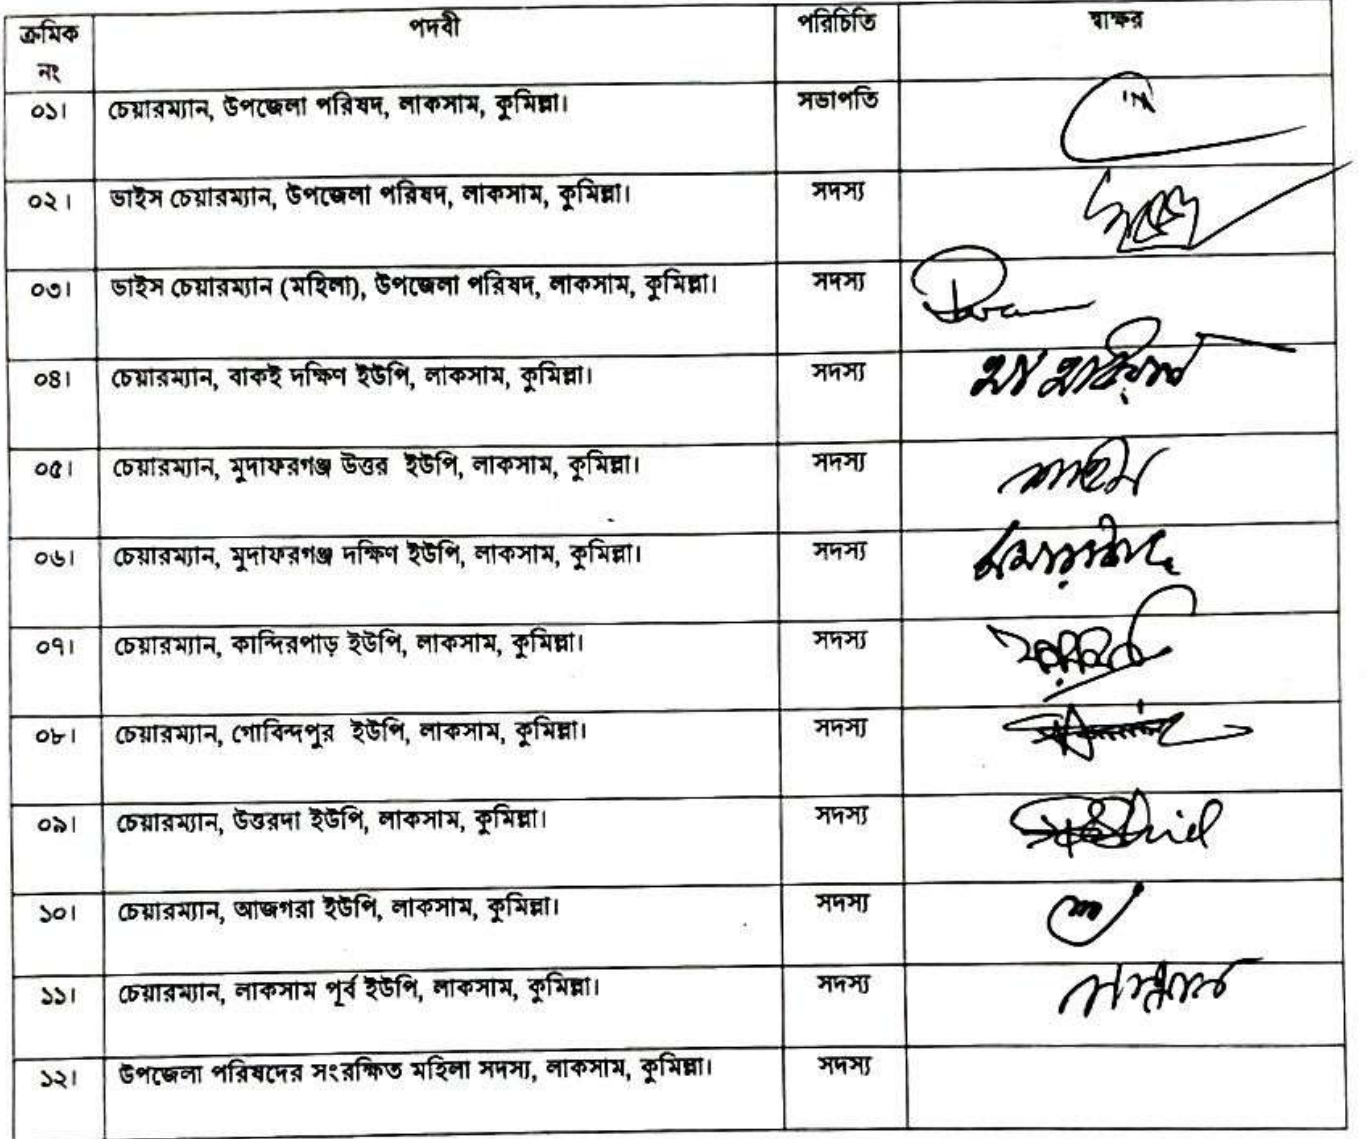 ক্রমিক নং পদবী পরিচিতি স্বাক্ষর
০১। চেয়ারম্যান, উপজেলা পরিষদ, লাকসাম, কুমিল্লা। সভাপতি
০২। ভাইস চেয়ারম্যান, উপজেলা পরিষদ, লাকসাম, কুমিল্লা। সদস্য
০৩। ভাইস চেয়ারম্যান (মহিলা), উপজেলা পরিষদ, লাকসাম, কুমিল্লা। সদস্য
০৪। চেয়ারম্যান, বাকই দক্ষিণ ইউপি, লাকসাম, কুমিল্লা। সদস্য
০৫। চেয়ারম্যান, মুদাফরগঞ্জ উত্তর ইউপি, লাকসাম, কুমিল্লা। সদস্য
০৬। চেয়ারম্যান, মুদাফরগঞ্জ দক্ষিণ ইউপি, লাকসাম, কুমিল্লা। সদস্য
০৭। চেয়ারম্যান, কান্দিরপাড় ইউপি, লাকসাম, কুমিল্লা। সদস্য
০৮। চেয়ারম্যান, গোবিন্দপুর ইউপি, লাকসাম, কুমিল্লা। সদস্য
০৯। চেয়ারম্যান, উত্তরদা ইউপি, লাকসাম, কুমিল্লা। সদস্য
১০। চেয়ারম্যান, আজগরা ইউপি, লাকসাম, কুমিল্লা। সদস্য
১১। চেয়ারম্যান, লাকসাম পূর্ব ইউপি, লাকসাম, কুমিল্লা। সদস্য
১২। উপজেলা পরিষদের সংরক্ষিত মহিলা সদস্য, লাকসাম, কুমিল্লা। সদস্য